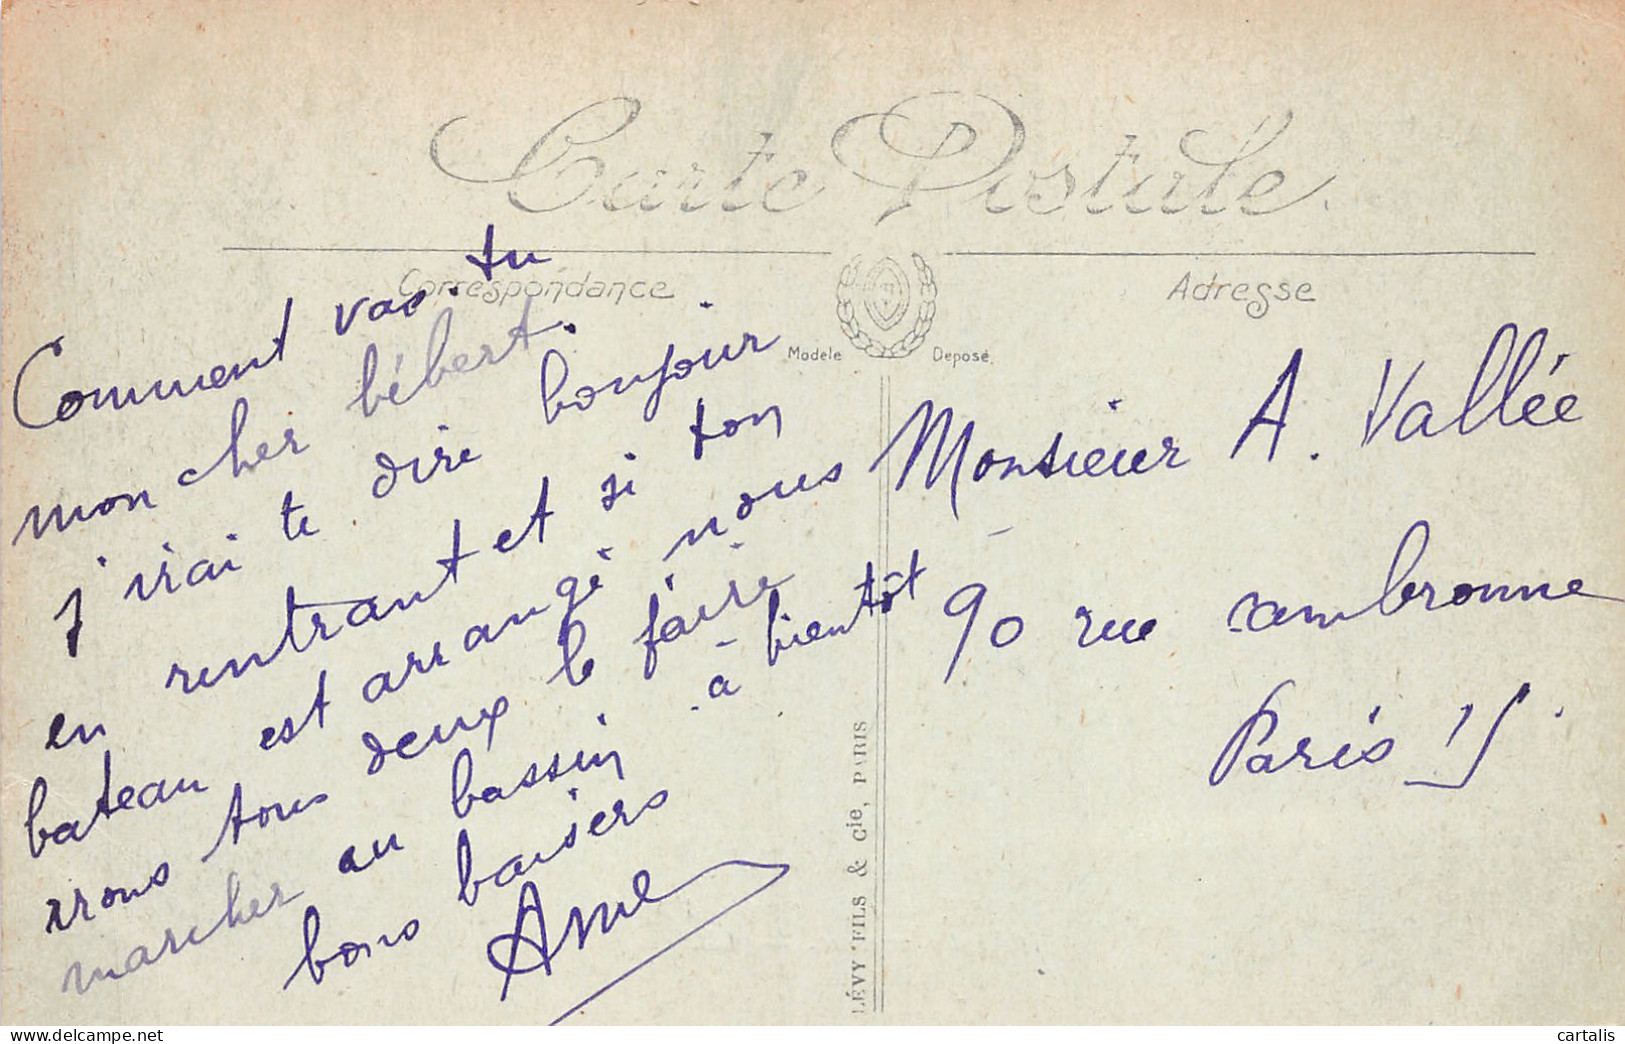 Carte Postale
Correspondance
Adresse
Modele Deposé.
Comment vas-tu
mon cher bébert.
j'irai te dire bonjour
en rentrant et si ton
bateau est arrangé nous
irons tous deux le faire
marcher au bassin . à bientôt
bons baisers
Monsieur A. Vallée
90 rue cambronne
Paris 15
LÉVY FILS & Cie, PARIS
cartalis